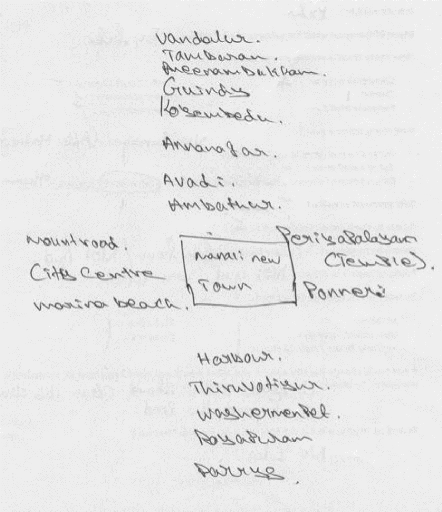 Vandalur.
Tambaram.
Meenambakkam.
Guindy
Koyembedu.
Annanagar.
Avadi.
Ambathur.
Mount road.
City Centre
marina beach.
manali new
Town
Periyapalayam
(Temple).
Ponneri
Harbour.
Thiruvotiyur.
washermenpet.
Royapuram
Parrys.